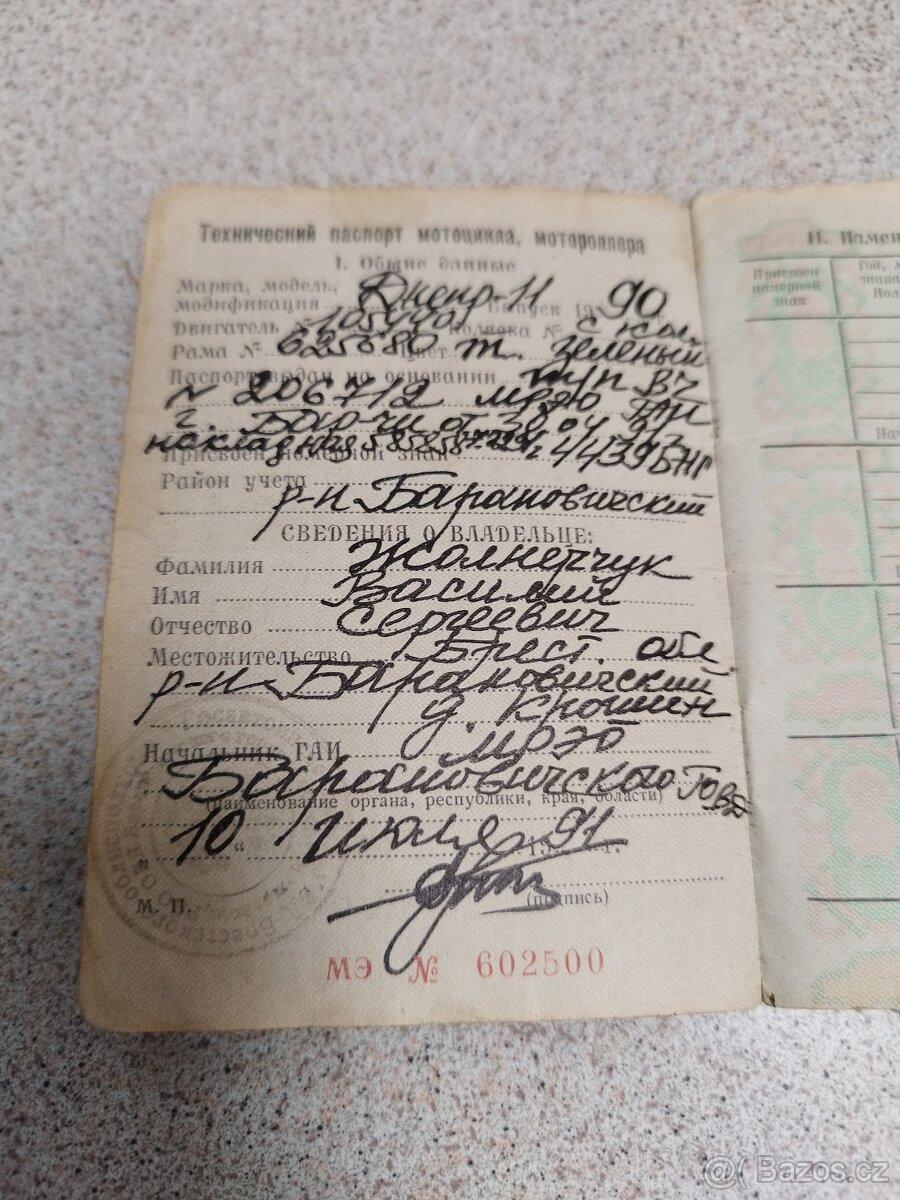 Технический паспорт мотоцикла, мотороллера
I. Общие данные
Марка, модель,
модификация Днепр-11 Выпуск 19 90
Двигатель № Коляска № с кол.
Рама № 625680 Цвет т. зеленый
Паспорт выдан на основании
N 206712 мрэо ГАИ
г. от
накладная
Присвоен номерной знак 4439 БНГ
Район учета
р-н Барановичский
СВЕДЕНИЯ О ВЛАДЕЛЬЦЕ:
Фамилия Жолнерчук
Имя Василий
Отчество Сергеевич
Местожительство Брест. обл.
р-н Барановичский
д. Крошин
Начальник ГАИ мрэо
Барановичского ГОВД
(наименование органа, республики, края, области)
10 " Июля 1991 г.
(подпись)
М. П.
МЭ № 602500
II. Измен
Присвоен
номерной
знак
Год, м
знака
@ Bazos.cz